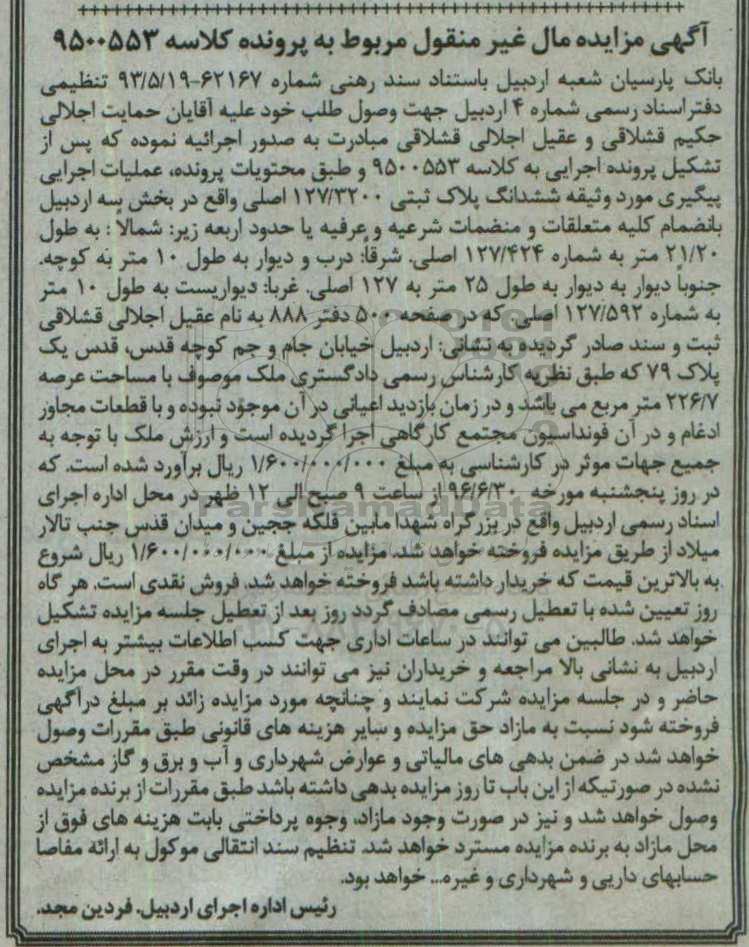 آگهی مزایده مال غیر منقول مربوط به پرونده کلاسه ۹۵۰۰۵۵۳
بانک پارسیان شعبه اردبیل باستناد سند رهنی شماره ۶۲۱۶۷-۹۳/۵/۱۹ تنظیمی
دفتراسناد رسمی شماره ۴ اردبیل جهت وصول طلب خود علیه آقایان حمایت اجلالی
حکیم قشلاقی و عقیل اجلالی قشلاقی مبادرت به صدور اجرائیه نموده که پس از
تشکیل پرونده اجرایی به کلاسه ۹۵۰۰۵۵۳ و طبق محتویات پرونده، عملیات اجرایی
پیگیری مورد وثیقه ششدانگ پلاک ثبتی ۱۲۷/۳۲۰۰ اصلی واقع در بخش سه اردبیل
بانضمام کلیه متعلقات و منضمات شرعیه و عرفیه یا حدود اربعه زیر: شمالاً : به طول
۲۱/۲۰ متر به شماره ۱۲۷/۴۲۴ اصلی. شرقاً: درب و دیوار به طول ۱۰ متر به کوچه.
جنوباً دیوار به دیوار به طول ۲۵ متر به ۱۲۷ اصلی. غربا: دیواریست به طول ۱۰ متر
به شماره ۱۲۷/۵۹۲ اصلی که در صفحه ۵۰۰ دفتر ۸۸۸ به نام عقیل اجلالی قشلاقی
ثبت و سند صادر گردیده به نشانی: اردبیل خیابان جام و جم کوچه قدس، قدس یک
پلاک ۷۹ که طبق نظریه کارشناس رسمی دادگستری ملک موصوف با مساحت عرصه
۲۲۶/۷ متر مربع می باشد و در زمان بازدید اعیانی در آن موجود نبوده و با قطعات مجاور
ادغام و در آن فونداسیون مجتمع کارگاهی اجرا گردیده است و ارزش ملک با توجه به
جمیع جهات موثر در کارشناسی به مبلغ ۱/۶۰۰/۰۰۰/۰۰۰ ریال برآورد شده است. که
در روز پنجشنبه مورخه ۹۶/۶/۳۰ از ساعت ۹ صبح الی ۱۲ ظهر در محل اداره اجرای
اسناد رسمی اردبیل واقع در بزرگراه شهدا مابین فلکه ججین و میدان قدس جنب تالار
میلاد از طریق مزایده فروخته خواهد شد. مزایده از مبلغ ۱/۶۰۰/۰۰۰/۰۰۰ ریال شروع
به بالاترین قیمت که خریدار داشته باشد فروخته خواهد شد. فروش نقدی است. هر گاه
روز تعیین شده با تعطیل رسمی مصادف گردد روز بعد از تعطیل جلسه مزایده تشکیل
خواهد شد. طالبین می توانند در ساعات اداری جهت کسب اطلاعات بیشتر به اجرای
اردبیل به نشانی بالا مراجعه و خریداران نیز می توانند در وقت مقرر در محل مزایده
حاضر و در جلسه مزایده شرکت نمایند و چنانچه مورد مزایده زائد بر مبلغ درآگهی
فروخته شود نسبت به مازاد حق مزایده و سایر هزینه های قانونی طبق مقررات وصول
خواهد شد در ضمن بدهی های مالیاتی و عوارض شهرداری و آب و برق و گاز مشخص
نشده در صورتیکه از این باب تا روز مزایده بدهی داشته باشد طبق مقررات از برنده مزایده
وصول خواهد شد و نیز در صورت وجود مازاد، وجوه پرداختی بابت هزینه های فوق از
محل مازاد به برنده مزایده مسترد خواهد شد. تنظیم سند انتقالی موکول به ارائه مفاصا
حسابهای داریی و شهرداری و غیره... خواهد بود.
رئیس اداره اجرای اردبیل. فردین مجد.
ParsNamadData